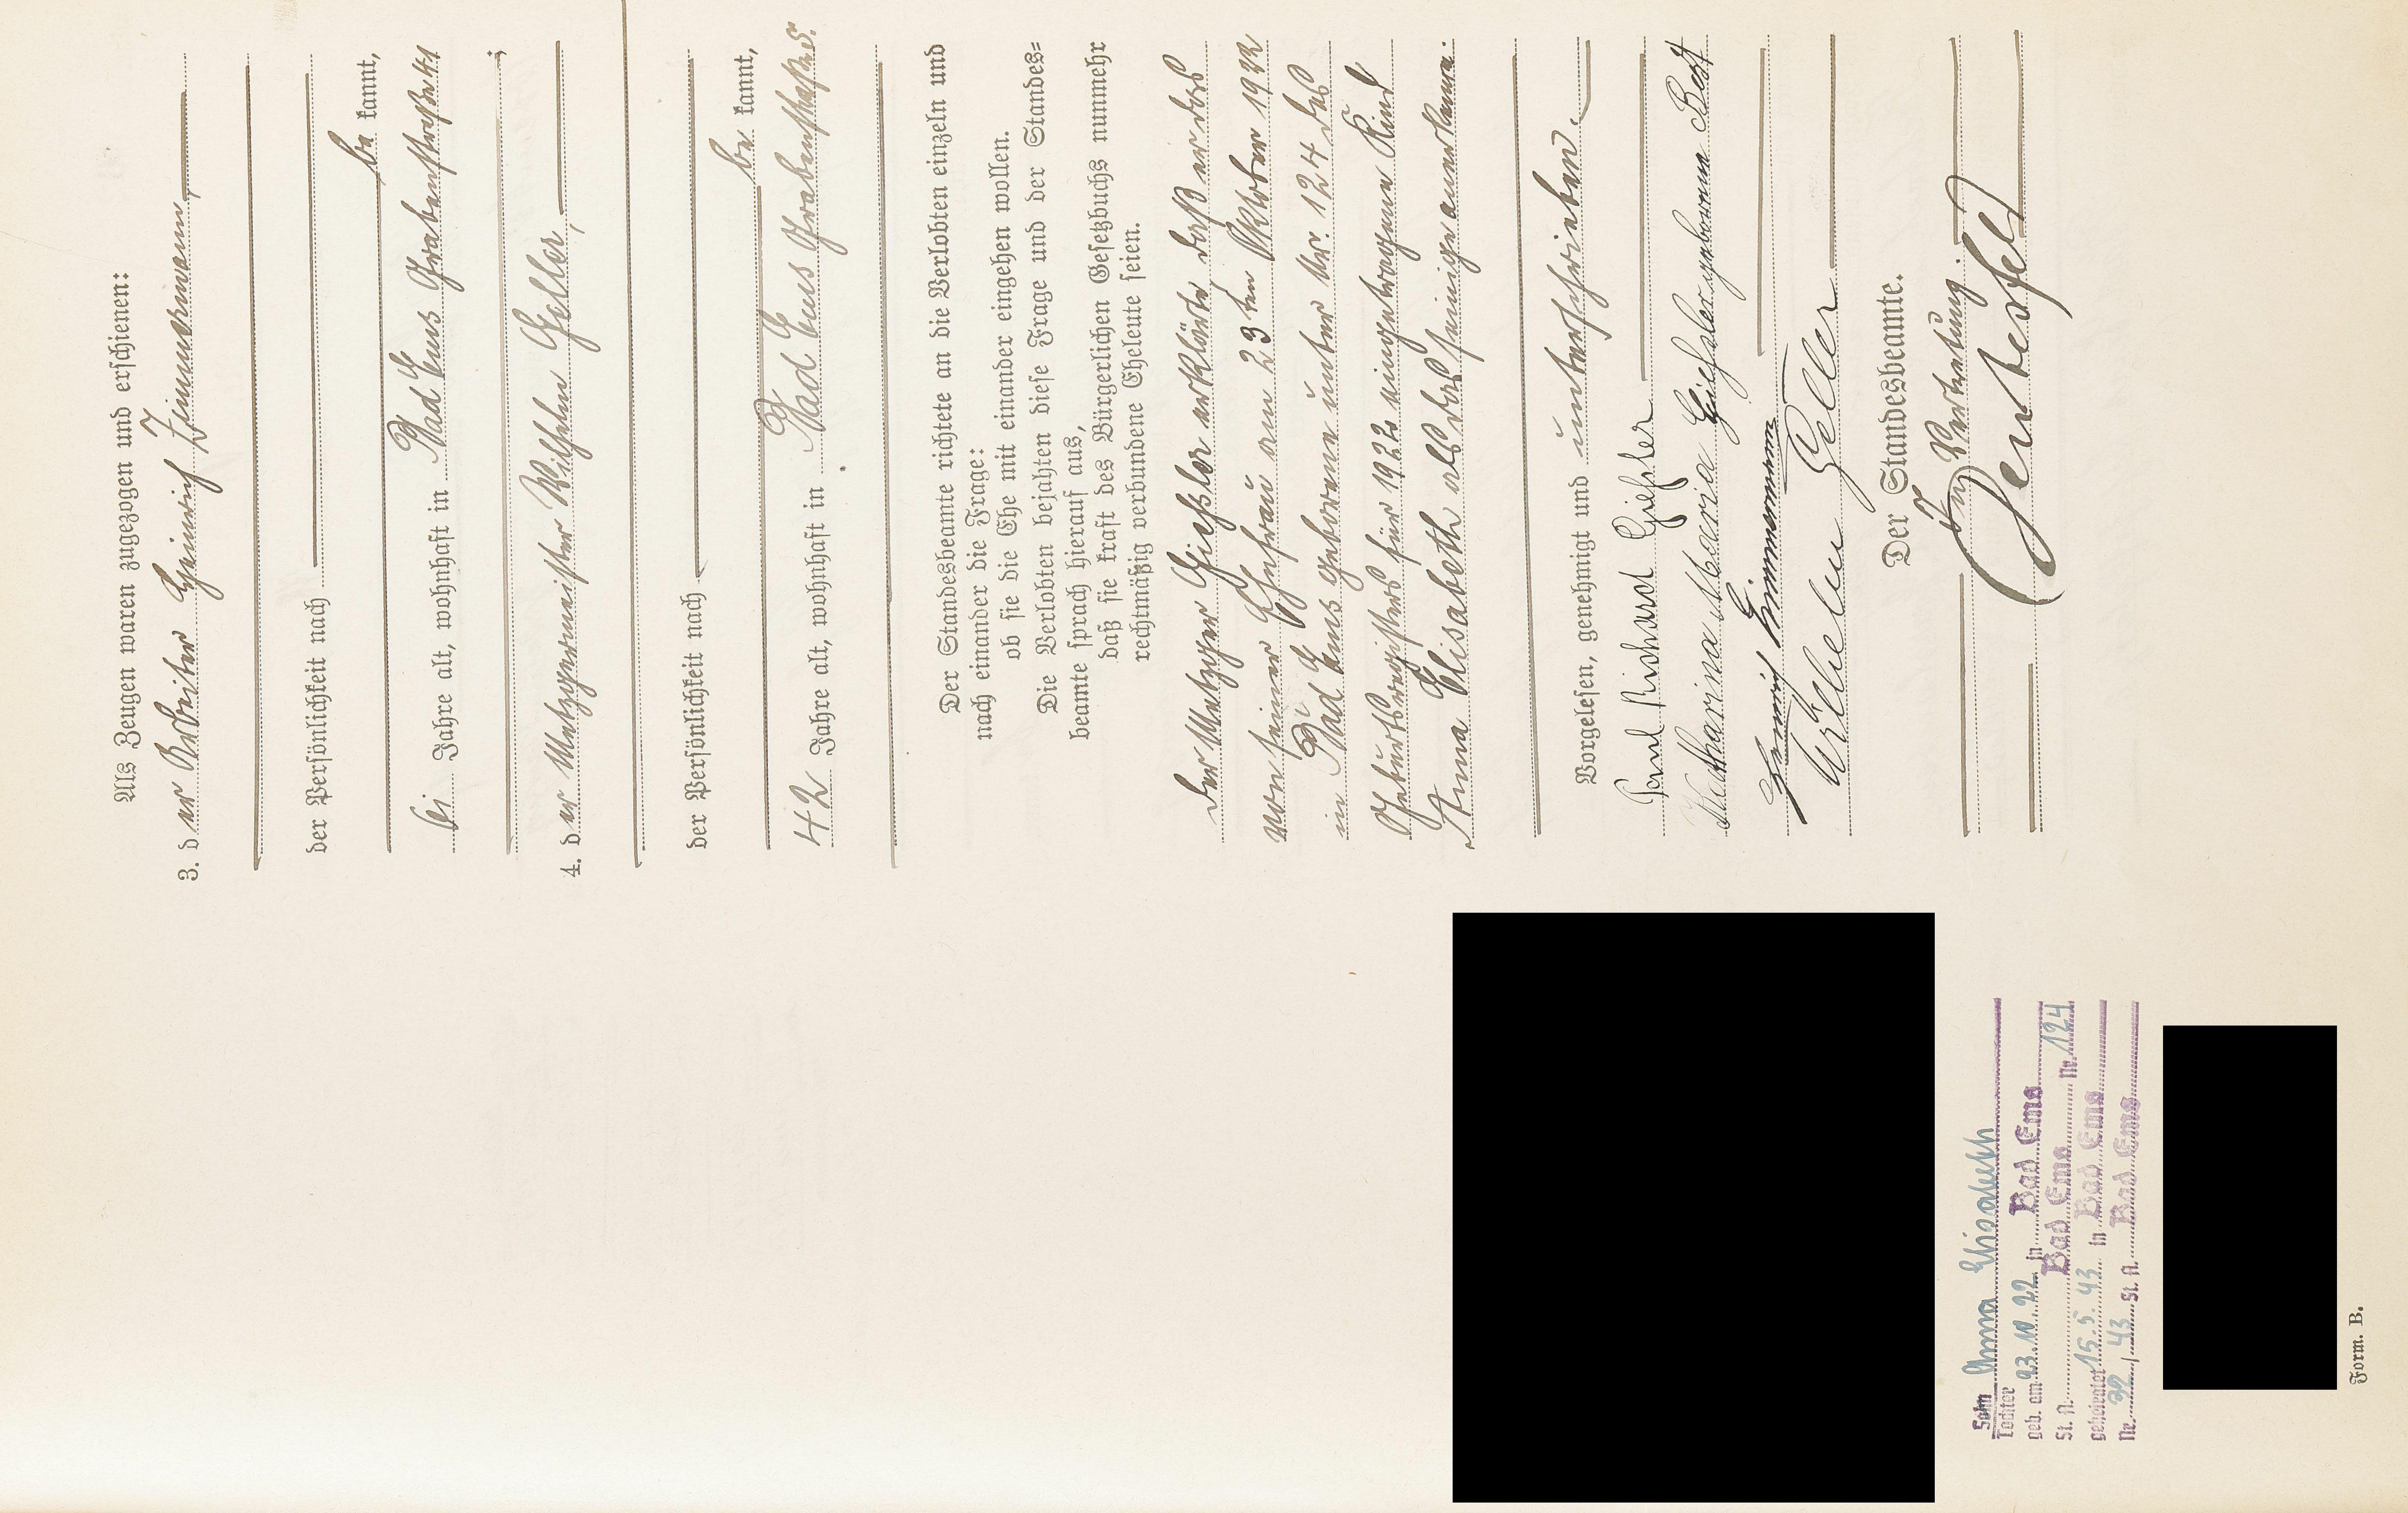 Als Zeugen waren zugezogen und erschienen:
3. der Arbeiter Heinrich Zimmermann,
der Persönlichkeit nach
be kannt,
61 Jahre alt, wohnhaft in Bad Ems Grabenstraße 41
;
4. der Metzgermeister Wilhelm Geller,
der Persönlichkeit nach
be kannt,
42 Jahre alt, wohnhaft in Bad Ems Grabenstraße
Der Standesbeamte richtete an die Verlobten einzeln und
nach einander die Frage:
ob sie die Ehe mit einander eingehen wollen.
Die Verlobten bejahten diese Frage und der Standes=
beamte sprach hierauf aus,
daß sie kraft des Bürgerlichen Gesetzbuchs nunmehr
rechtmäßig verbundene Eheleute seien.
Der Metzger Gießler erklärte, daß er das
von seiner Ehefrau am 23ten Oktober 1922
in Bad Ems geborene unter Nr. 124 des
Geburtsregisters für 1922 eingetragene Kind
Anna Elisabeth als das seinige anerkenne.
Vorgelesen, genehmigt und unterschrieben.
Paul Richard Gießler
Katharina Maria Gießler geborene Best
Heinrich Zimmermann
Wilhelm Geller
Der Standesbeamte.
In Vertretung.
Sohn
Tochter Anna Elisabeth
geb. am 23.10.22 in Bad Ems
St. A. Bad Ems Nr. 124
geheiratet 15.5.43 in Bad Ems
Nr. 32/43 St. A. Bad Ems
Form. B.